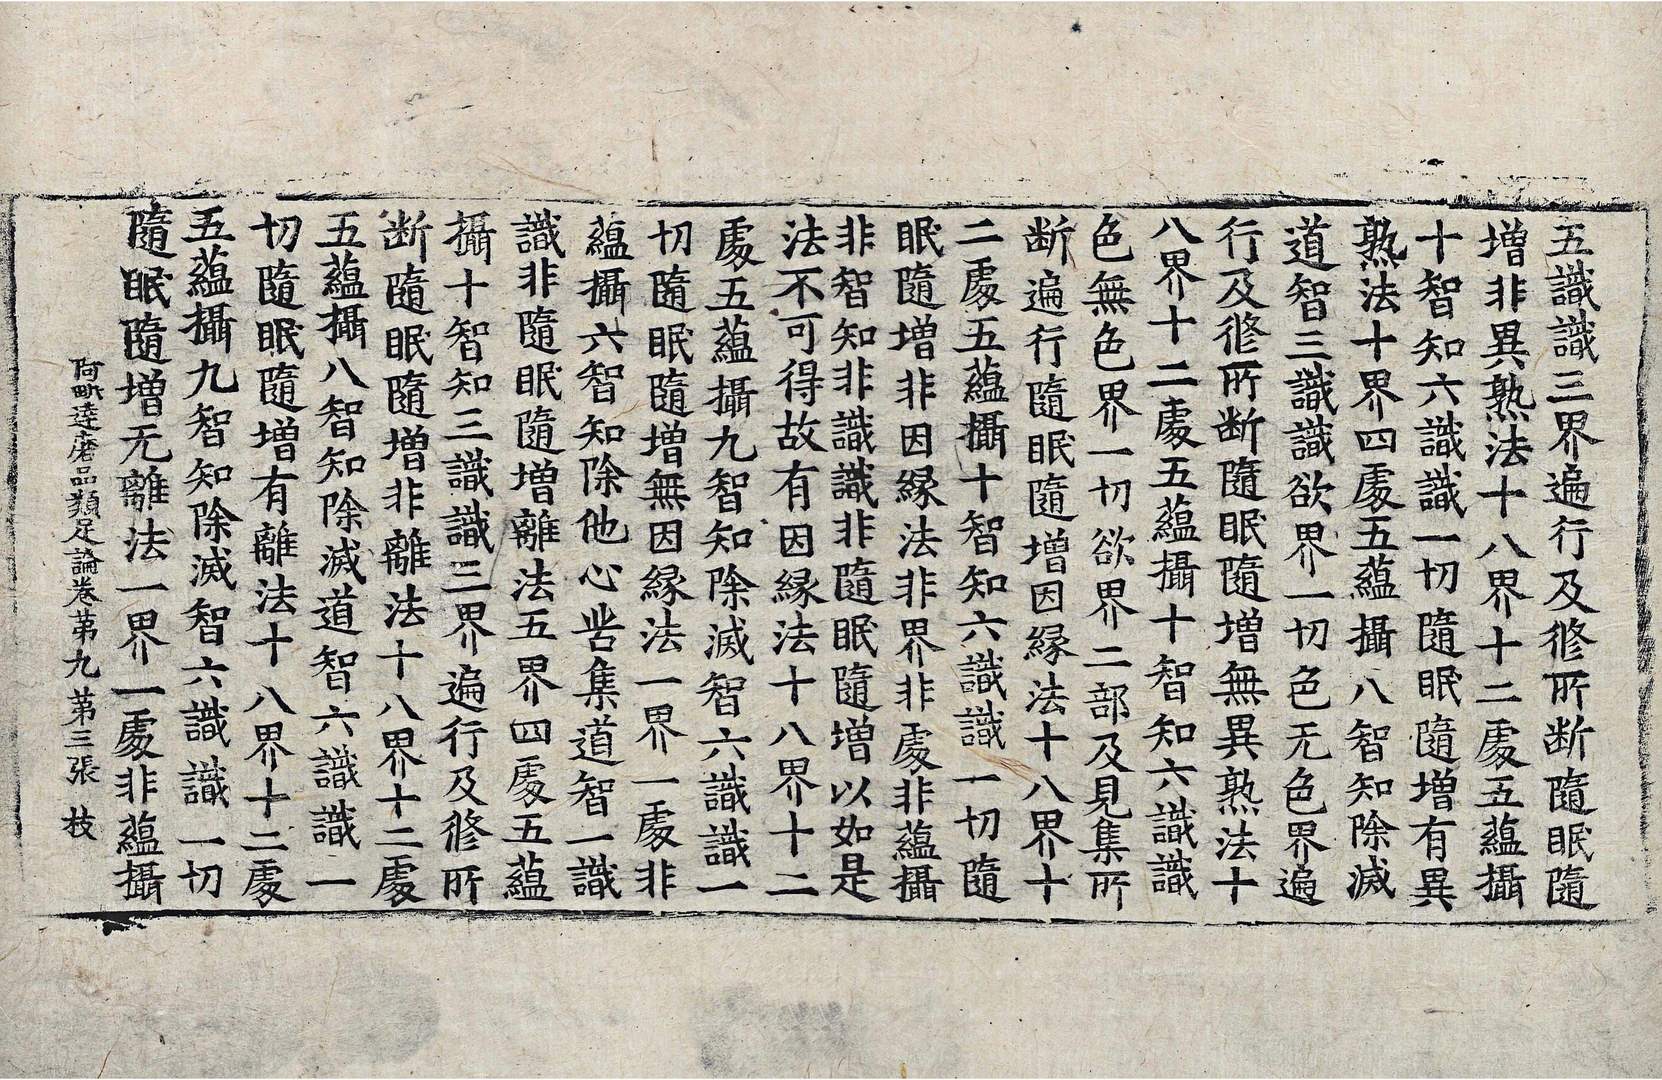 五識識三界遍行及修所断隨眠隨
增非異熟法十八界十二處五蘊攝
十智知六識識一切隨眠隨增有異
熟法十界四處五蘊攝八智知除滅
道智三識識欲界一切色无色界遍
行及修所断隨眠隨增無異熟法十
八界十二處五蘊攝十智知六識識
色無色界一切欲界二部及見集所
断遍行隨眠隨增因縁法十八界十
二處五蘊攝十智知六識識一切隨
眠隨增非因縁法非界非處非蘊攝
非智知非識識非隨眠隨增以如是
法不可得故有因縁法十八界十二
處五蘊攝九智知除滅智六識識一
切隨眠隨增無因縁法一界一處非
蘊攝六智知除他心苦集道智一識
識非隨眠隨增離法五界四處五蘊
攝十智知三識識三界遍行及修所
断隨眠隨增非離法十八界十二處
五蘊攝八智知除滅道智六識識一
切隨眠隨增有離法十八界十二處
五蘊攝九智知除滅智六識識一切
隨眠隨增无離法一界一處非蘊攝
阿毗達磨品類足論卷第九 第三張 枝